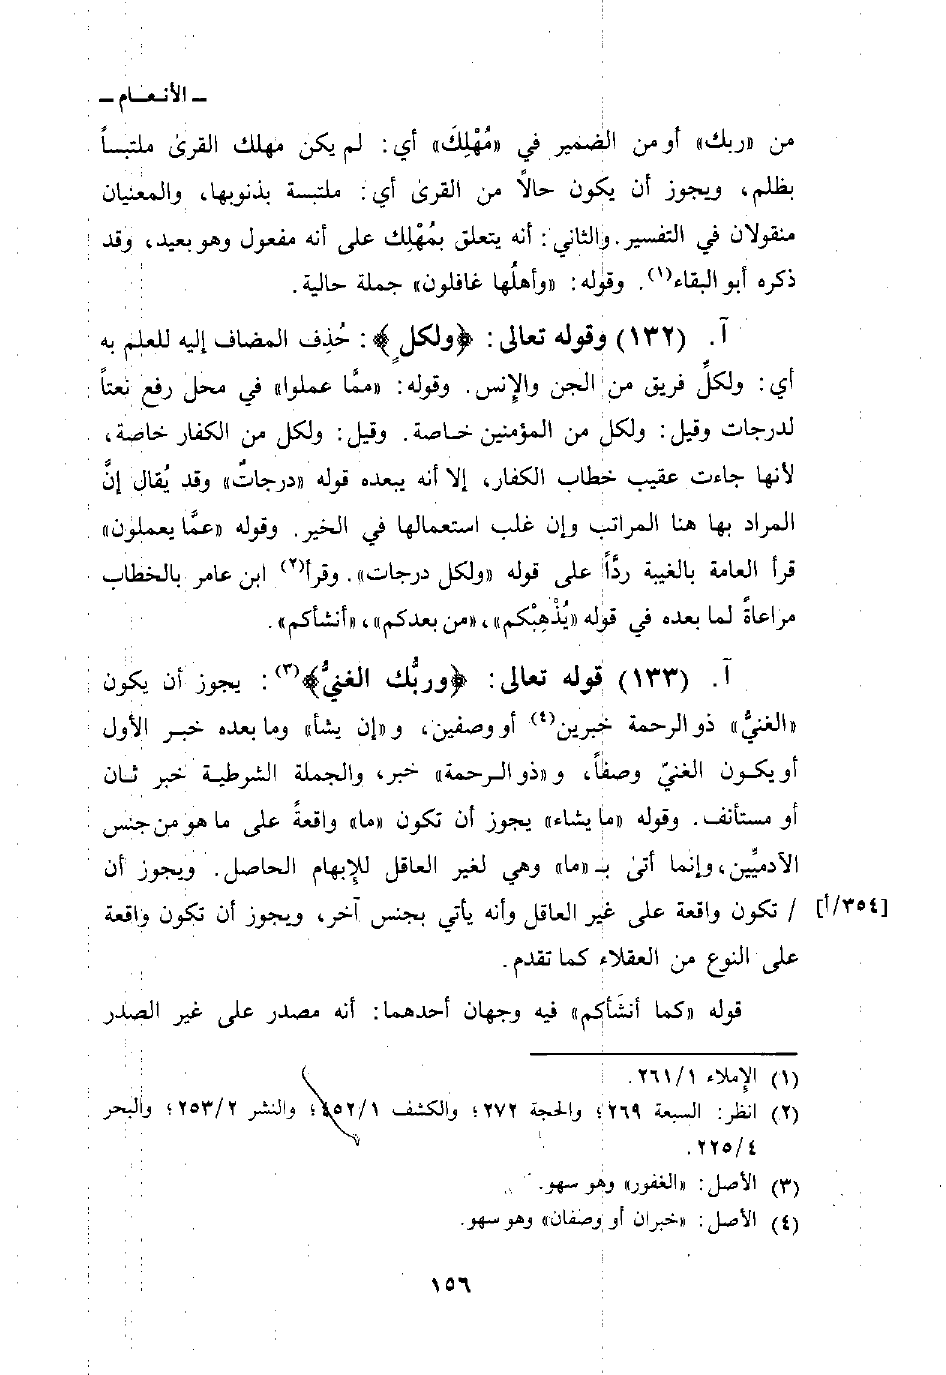 ـ الأنـعـام ـ
من «ربك» أو من الضمير في «مُهْلِكَ» أي: لم يكن مهلك القرىٰ ملتبساً
بظلم، ويجوز أن يكون حالاً من القرىٰ أي: ملتبسة بذنوبها، والمعنيان
منقولان في التفسير. والثاني: أنه يتعلق بمُهْلِك على أنه مفعول وهو بعيد، وقد
ذكره أبو البقاء(١). وقوله: «وأهلُها غافلون» جملة حالية.
آ. (١٣٢) وقوله تعالى: ﴿ولكلٍ﴾: حُذِف المضاف إليه للعلم به
أي: ولكلِّ فريق من الجن والإنس. وقوله: «ممَّا عملوا» في محل رفع نعتاً
لدرجات وقيل: ولكل من المؤمنين خاصة. وقيل: ولكل من الكفار خاصة،
لأنها جاءت عقيب خطاب الكفار، إلا أنه يبعده قوله «درجاتٌ» وقد يُقال إنَّ
المراد بها هنا المراتب وإن غلب استعمالها في الخير. وقوله «عمَّا يعملون»
قرأ العامة بالغيبة ردَّاً على قوله «ولكل درجات». وقرأ(٢) ابن عامر بالخطاب
مراعاةً لما بعده في قوله «يُذْهِبْكم»، «من بعدكم»، «أنشأكم».
آ. (١٣٣) قوله تعالى: ﴿وربُّك الغنيُّ﴾(٣): يجوز أن يكون
«الغنيُّ» ذو الرحمة خبرين(٤) أو وصفين، و«إن يشأ» وما بعده خبر الأول
أو يكون الغنيّ وصفاً، و«ذو الرحمة» خبر، والجملة الشرطية خبر ثـان
أو مستأنف. وقوله «ما يشاء» يجوز أن تكون «ما» واقعةً على ما هو من جنس
الآدميِّين، وإنما أتىٰ بـ«ما» وهي لغير العاقل للإبهام الحاصل. ويجوز أن
[٣٥٤/أ] / تكون واقعة على غير العاقل وأنه يأتي بجنس آخر، ويجوز أن تكون واقعة
على النوع من العقلاء كما تقدم.
قوله «كما أنشَأكم» فيه وجهان أحدهما: أنه مصدر على غير الصدر
(١) الإملاء ٢٦١/١.
(٢) انظر: السبعة ٢٦٩؛ والحجة ٢٧٢؛ والكشف ٤٥٢/١؛ والنشر ٢٥٣/٢؛ والبحر
٢٢٥/٤.
(٣) الأصل: «الغفور» وهو سهو.
(٤) الأصل: «خبران أو وصفان» وهو سهو.
١٥٦